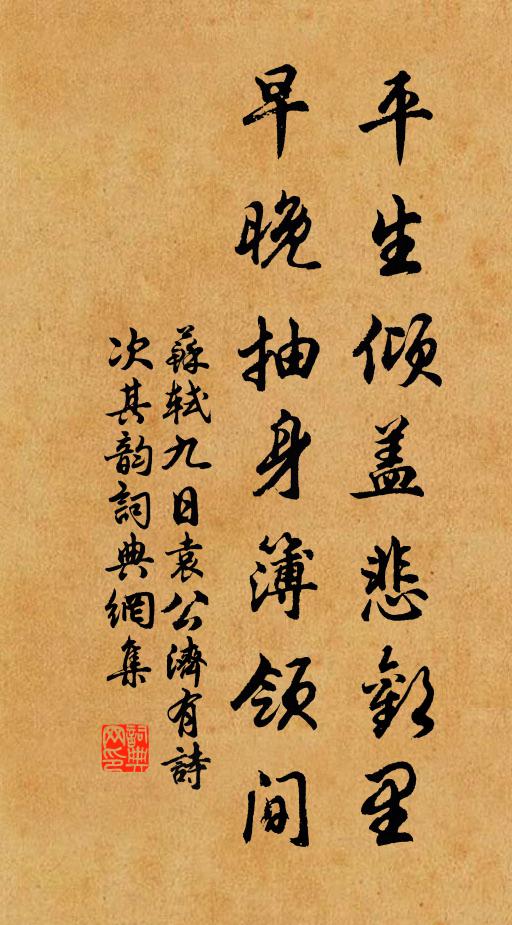 平生傾盖悲歡里
早晚抽身簿領間
蘇軾九日袁公濟有詩
次其韵詞典網集
詞典网印